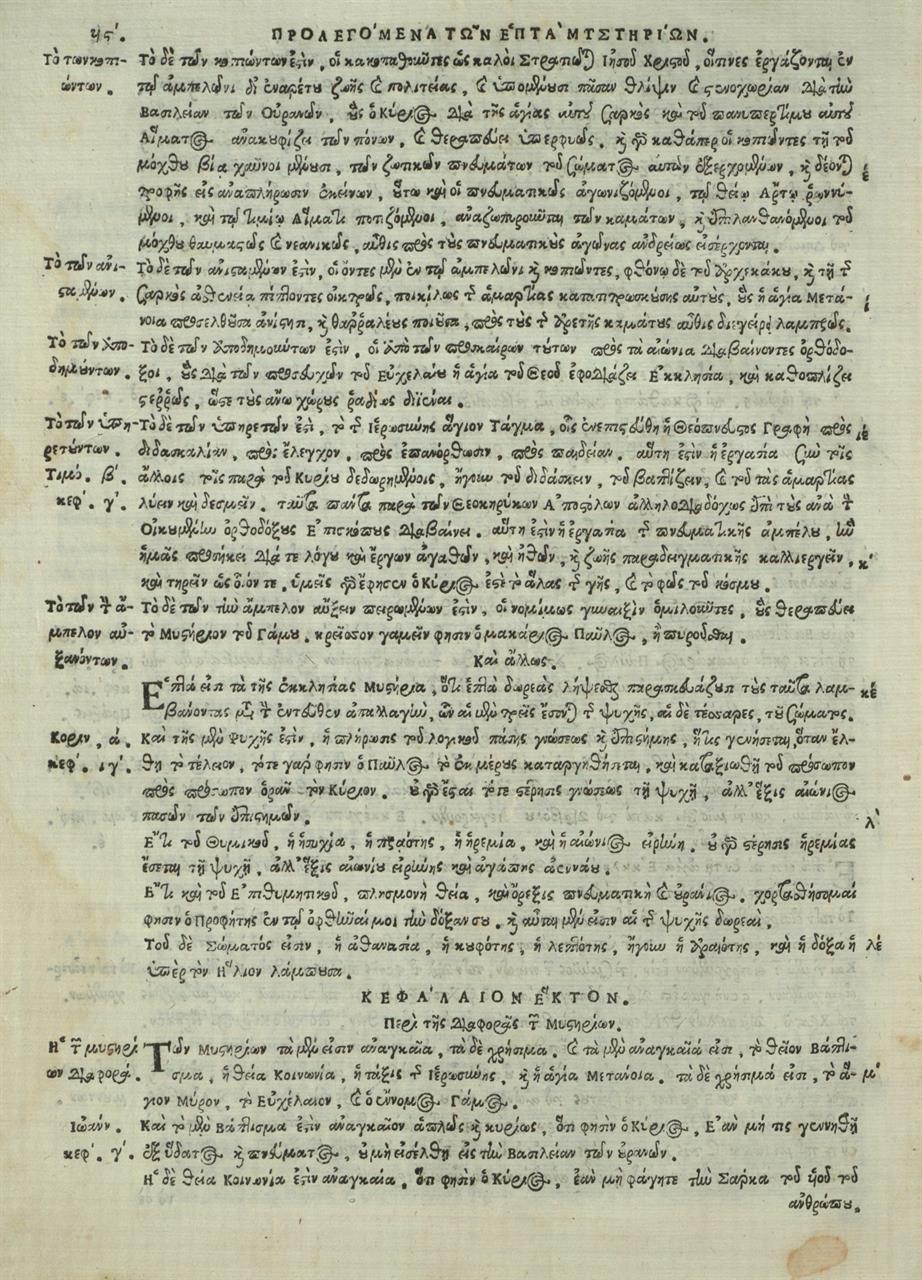 ιϛʹ. ΠΡΟΛΕΓΟ΄ΜΕΝΑ ΤΩ͂Ν Ε῾ΠΤΑ` ΜΥΣΤΗΡΙΩ΄Ν.
Τὸ τῶν κοπι- Τὸ δὲ τῶν κοπιώντων ἐςὶν, οἱ κακοπαθοῦντες ὡς καλοὶ Στρατιῶται Ἰησοῦ Χριςοῦ, οἵτινες ἐργάζονται ἐν
ώντων. τῷ ἀμπελῶνι δι' ἐναρέτου ζωῆς καὶ πολιτείας, καὶ ὑπομένουσι πᾶσαν θλίψιν καὶ ςενοχωρίαν διὰ τὴν
Βασιλείαν τῶν Οὐρανῶν, οὓς ὁ Κύριος διὰ τῆς ἁγίας αὐτοῦ Σαρκὸς καὶ τοῦ πανυπερτίμου αὐτοῦ
Αἵματος ἀνακουφίζει τῶν πόνων, καὶ θεραπεύει ὑπερφυῶς. καὶ γὰρ καθάπερ οἱ κοπιῶντες τῇ τοῦ
μόχθου βίᾳ χαῦνοι μένουσι, τῶν ζωτικῶν πνευμάτων τοῦ Σώματος αὐτῶν ἐξερχομένων, καὶ δέονται
τροφῆς εἰς ἀναπλήρωσιν ἐκείνων, οὕτω καὶ οἱ πνευματικῶς ἀγωνιζόμενοι, τῷ θείῳ Ἄρτῳ ῥωννύ-
μενοι, καὶ τῷ τιμίῳ Αἵματι ποτιζόμενοι, ἀναζωπυροῦνται τῶν καμάτων, καὶ ἐπιλανθανόμενοι τοῦ
μόχθου θαυμαςῶς καὶ νεανικῶς, αὖθις πρὸς τοὺς πνευματικοὺς ἀγῶνας ἀνδρείως εἰσέρχονται.
Τὸ τῶν ἀνι- Τὸ δὲ τῶν ἀνιςαμένων ἐςὶν, οἱ ὄντες μὲν ἐν τῷ ἀμπελῶνι καὶ κοπιῶντες, φθόνῳ δὲ τοῦ Ἀρχεκάκου, καὶ τῇ τῆς
ςαμένων. Σαρκὸς ἀσθενείᾳ πίπτοντες οἰκτρῶς, ποικίλως τῆς ἁμαρτίας κατατιτρωσκούσης αὐτοὺς, οὓς ἡ ἁγία Μετά-
νοια προσελθοῦσα ἀνίςησι, καὶ θαῤῥαλέους ποιοῦσα, πρὸς τοὺς τῆς Ἀρετῆς καμάτους αὖθις διεγείρει λαμπρῶς.
Τὸ τῶν ἀπο- Τὸ δὲ τῶν ἀποδημούντων ἐςὶν, οἱ ἀπὸ τῶν προσκαίρων τούτων πρὸς τὰ αἰώνια διαβαίνοντες ὀρθόδο-
δημούντων. ξοι, οὓς διὰ τῶν προσευχῶν τοῦ Εὐχελαίου ἡ ἁγία τοῦ Θεοῦ ἐφοδιάζει Ἐκκλησία, καὶ καθοπλίζει
ςεῤῥῶς, ὥςε τοὺς ἄνω χώρους ῥᾳδίως διϊέναι.
Τὸ τῶν ὑπη- Τὸ δὲ τῶν ὑπηρετῶν ἐςὶ, τὸ τῆς Ἱερωσύνης ἅγιον Τάγμα, οἷς ἐνεπιςεύθη ἡ Θεόπνευςος Γραφὴ πρὸς
ρετούντων. διδασκαλίαν, πρὸς ἔλεγχον, πρὸς ἐπανόρθωσιν, πρὸς παιδείαν. αὕτη ἐςὶν ἡ ἐργασία σὺν τοῖς
Τιμό. βʹ. ἄλλοις τοῖς παρὰ τοῦ Κυρίου δεδωρημένοις, ἤγουν τοῦ διδάσκειν, τοῦ βαπτίζειν, καὶ τοῦ τὰς ἁμαρτίας
κεφ. γʹ. λύειν καὶ δεσμεῖν. ταῦτα πάντα παρὰ τῶν Θεοκηρύκων Ἀποςόλων ἀλληλοδιαδόχως ἐπὶ τοὺς ἀνὰ τὴν
Οἰκουμένην ὀρθοδόξους Ἐπισκόπους διαβαίνει. αὕτη ἐςὶν ἡ ἐργασία τῆς πνευματικῆς ἀμπέλου, ἣν
ἡμᾶς προσήκει διά τε λόγου καὶ ἔργων ἀγαθῶν, καὶ ἠθῶν, καὶ ζωῆς παραδειγματικῆς καλλιεργεῖν, κʹ
καὶ τηρεῖν ὡς οἷόν τε. ὑμεῖς γὰρ ἔφησεν ὁ Κύριος ἐςὲ τὸ ἅλας τῆς γῆς, καὶ τὸ φῶς τοῦ κόσμου.
Τὸ τῶν τὴν ἄ- Τὸ δὲ τῶν τὴν ἄμπελον αὔξειν πειρωμένων ἐςὶν, οἱ νομίμως γυναιξὶν ὁμιλοῦντες, οὓς θεραπεύει
μπελον αὐ- τὸ Μυςήριον τοῦ Γάμου. κρεῖσσον γαμεῖν φησὶν ὁ μακάριος Παῦλος, ἢ πυροῦσθαι.
ξανόντων. Καὶ ἄλλως.
Ἑπτά εἰσι τὰ τῆς ἐκκλησίας Μυςήρια, ὅτι ἑπτὰ δωρεὰς λήψεσθαι παρασκευάζουσι τοὺς ταῦτα λαμ- κέ
βάνοντας μετὰ τὴν ἐντεῦθεν ἀπαλλαγὴν, ὧν αἱ μὲν τρεῖς εἰσὶ τῆς ψυχῆς, αἱ δὲ τέσσαρες, τοῦ Σώματος.
Κοριν. ά. Καὶ τῆς μὲν Ψυχῆς ἐςὶν, ἡ πλήρωσις τοῦ λογικοῦ πάσης γνώσεως καὶ ἐπιςήμης, ἥτις γενήσεται, ὅταν ἔλ-
κεφ. ιγʹ. θῃ τὸ τέλειον, τότε γὰρ φησὶν ὁ Παῦλος τὸ ἐκ μέρους καταργηθήσεται, καὶ καταξιωθῇ τοῦ πρόσωπον
πρὸς πρόσωπον ὁρᾶν τὸν Κύριον. οὐ γὰρ ἔςαι τότε ςέρησις γνώσεως τῇ ψυχῇ, ἀλλ' ἕξις αἰώνιος
πασῶν τῶν ἐπιςημῶν.
Ἔτι τοῦ Θυμικοῦ, ἡ ἡσυχία, ἡ πραότης, ἡ ἠρεμία, καὶ ἡ αἰώνιος εἰρήνη. οὐ γὰρ ςέρησις ἠρεμίας λʹ
ἔσεται τῇ ψυχῇ, ἀλλ' ἕξις αἰωνίου εἰρήνης καὶ ἀγάπης ἀεννάου.
Ἔτι καὶ τοῦ Ἐπιθυμητικοῦ, πλησμονὴ θεία, καὶ ὄρεξις πνευματικὴ καὶ οὐράνιος. χορτασθήσομαι
φησὶν ὁ Προφήτης ἐν τῷ ὀφθῆναί μοι τὴν δόξαν σου. καὶ αὗται μέν εἰσιν αἱ τῆς ψυχῆς δωρεαί.
Τοῦ δὲ Σώματός εἰσιν, ἡ ἀθανασία, ἡ κουφότης, ἡ λεπτότης, ἤγουν ἡ ἀραιότης, καὶ ἡ δόξα ἡ λέ
ὑπὲρ τὸν Ἥλιον λάμπουσα.
ΚΕΦΑ΄ΛΑΙΟΝ Ε῞ΚΤΟΝ.
Περὶ τῆς διαφορᾶς τῶν Μυςηρίων.
Ἡ τῶν μυςηρί- Τῶν Μυςηρίων τὰ μέν εἰσιν ἀναγκαῖα, τὰ δὲ χρήσιμα. καὶ τὰ μὲν ἀναγκαῖά εἰσι, τὸ θεῖον Βάπτι-
ων διαφορά. σμα, ἡ θεία Κοινωνία, ἡ τάξις τῆς Ἱερωσύνης, καὶ ἡ ἁγία Μετάνοια. τὰ δὲ χρήσιμά εἰσι, τὸ ἅ- μʹ
γιον Μύρον, τὸ Εὐχέλαιον, καὶ ὁ ἔννομος Γάμος.
Ἰωάνν. Καὶ τὸ μὲν Βάπτισμα ἐςὶν ἀναγκαῖον ἁπλῶς καὶ κυρίως, ὅτι φησὶν ὁ Κύριος, Ἐὰν μή τις γεννηθῇ
κεφ. γʹ. ἐξ ὕδατος καὶ πνεύματος, οὐ μὴ εἰσέλθῃ εἰς τὴν Βασιλείαν τῶν οὐρανῶν.
Ἡ δὲ θεία Κοινωνία ἐςὶν ἀναγκαία, ὅτι φησὶν ὁ Κύριος, ἐὰν μὴ φάγητε τὴν Σάρκα τοῦ υἱοῦ τοῦ
ἀνθρώπου.